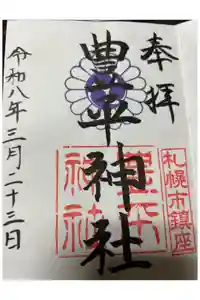 奉拝
札幌市鎮座
豊平神社
豊平
神社
令和八年三月二十三日